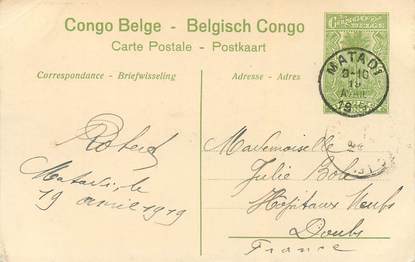 Congo Belge - Belgisch Congo
Carte Postale - Postkaart
Correspondance - Briefwisseling
Adresse - Adres
CONGO
MATADI
9-10
19
AVRIL
Matadi, le
19 avril 1919
Mademoiselle
Julie
Hôpitaux Neufs
Doubs
France